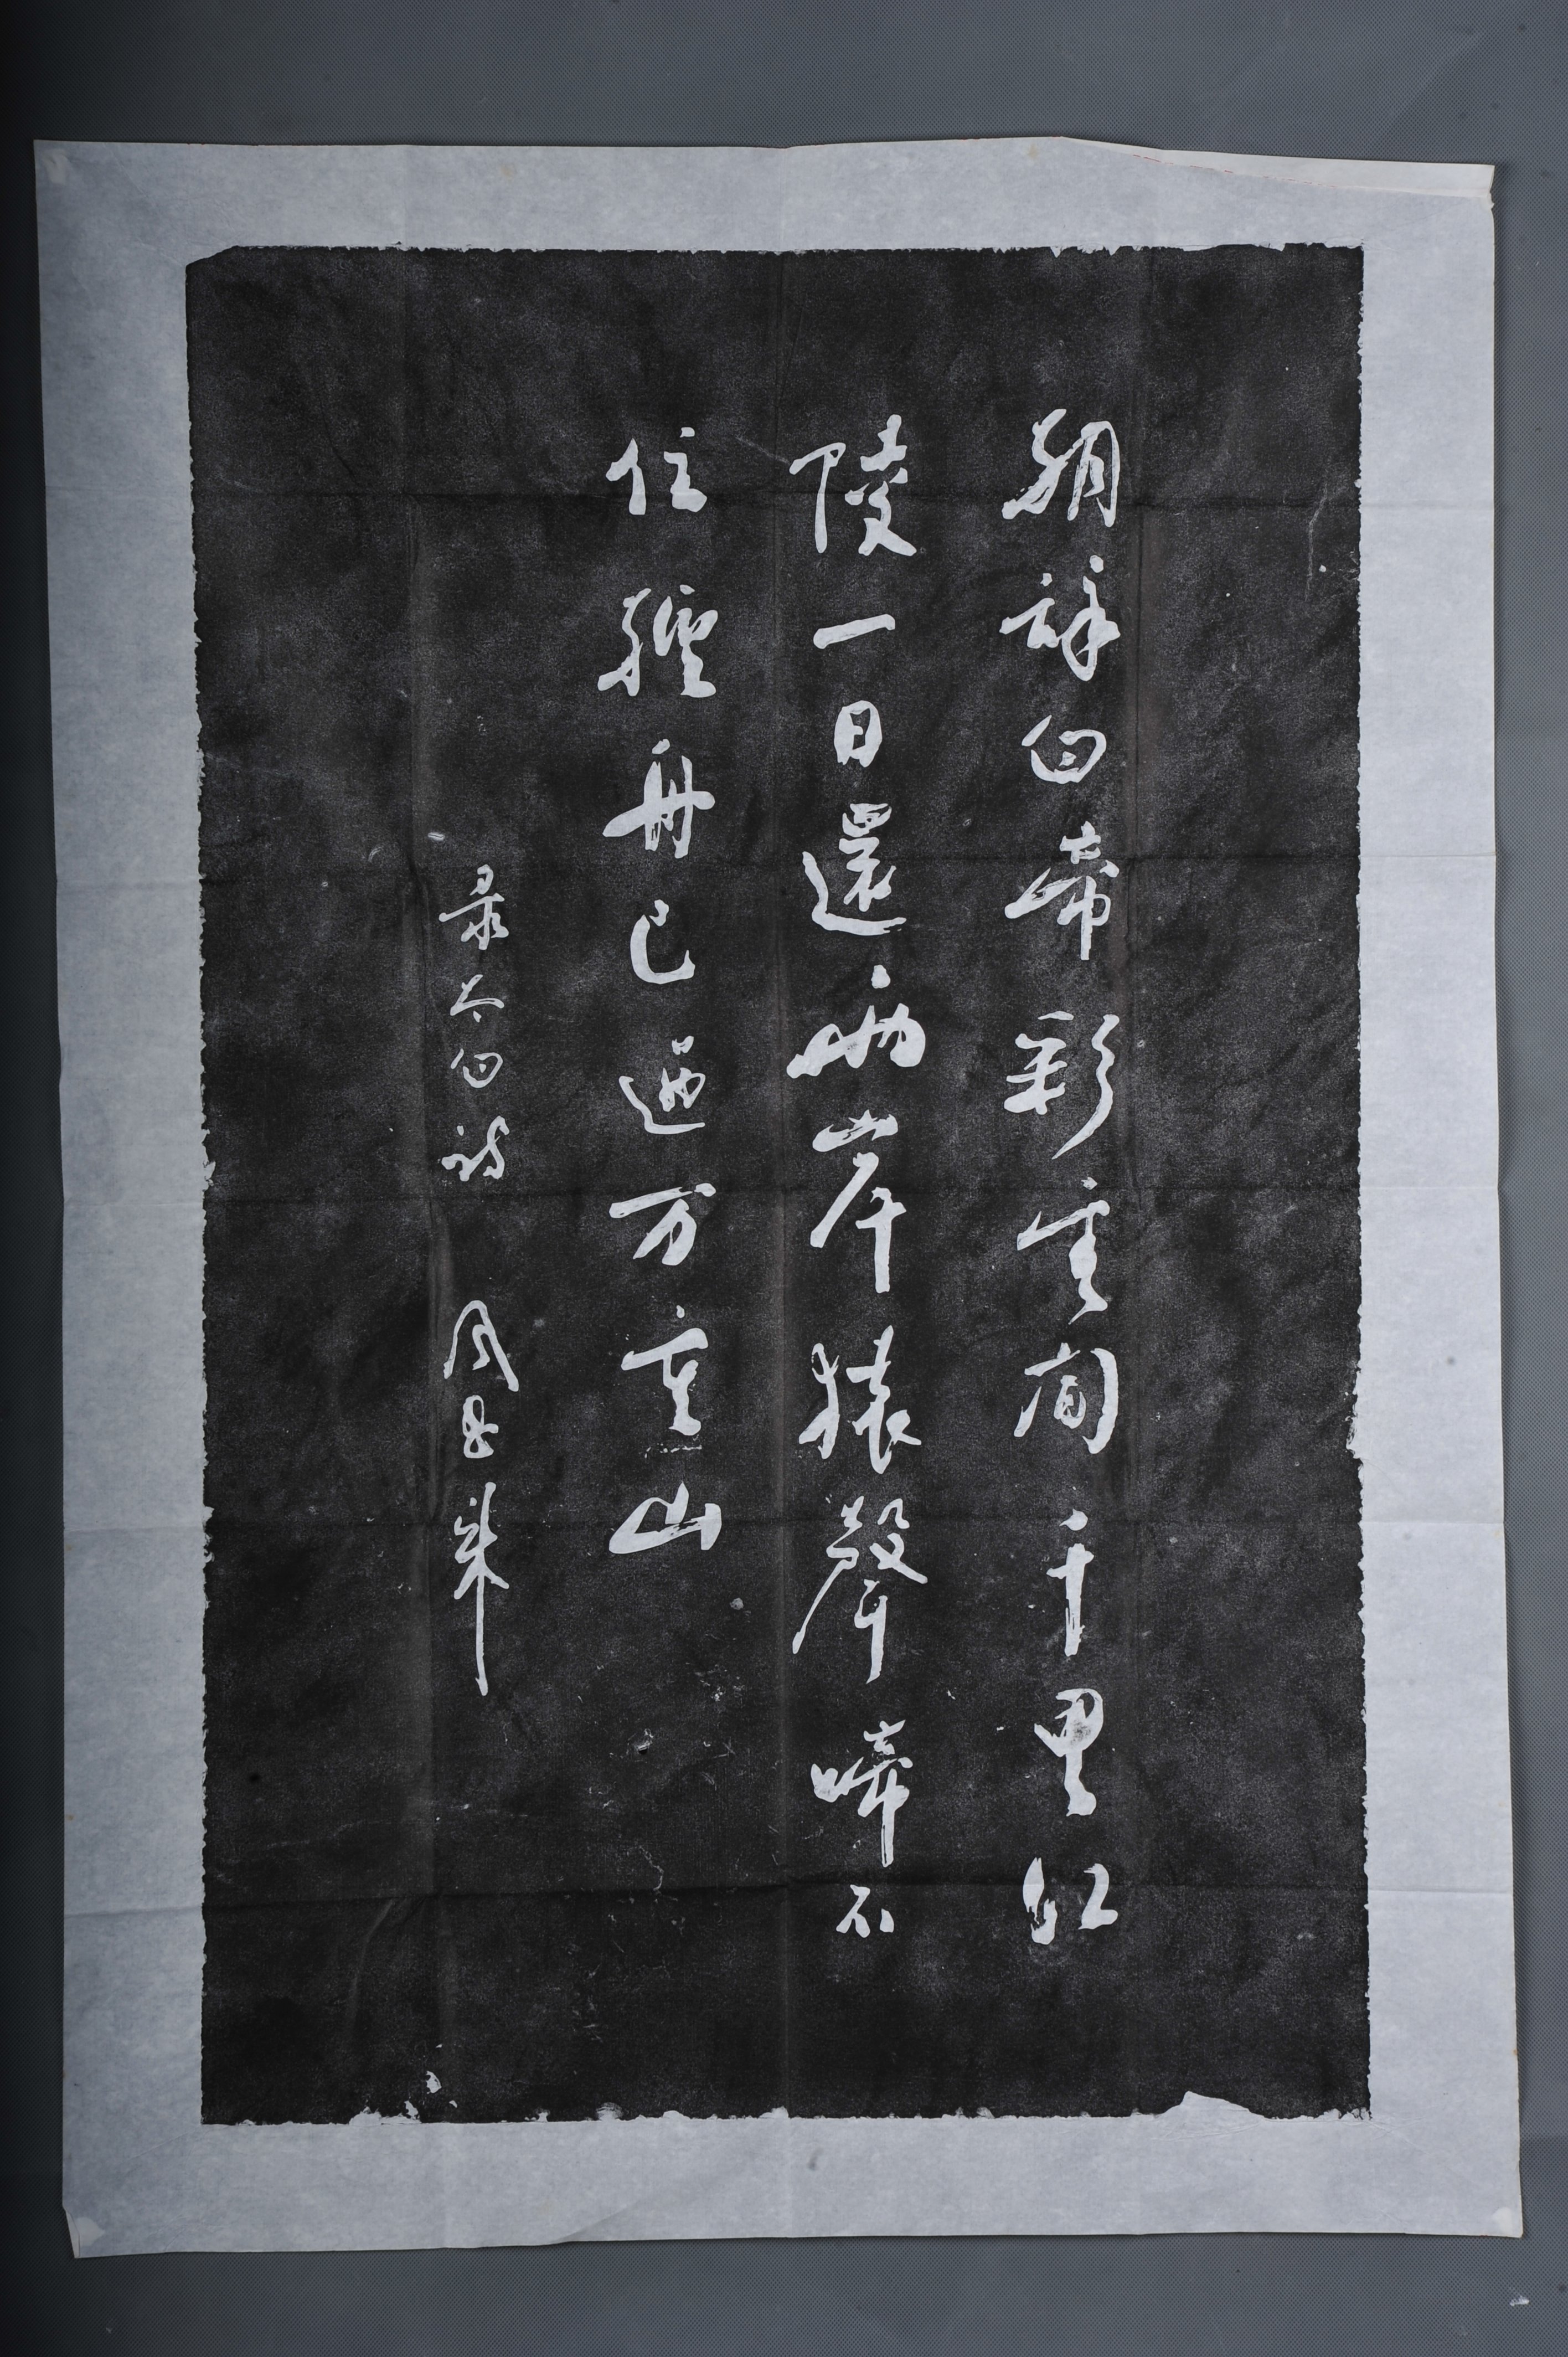 朝辞白帝彩雲间千里江
陵一日還兩岸猿聲啼不
住輕舟已過万重山
录太白诗 周恩来